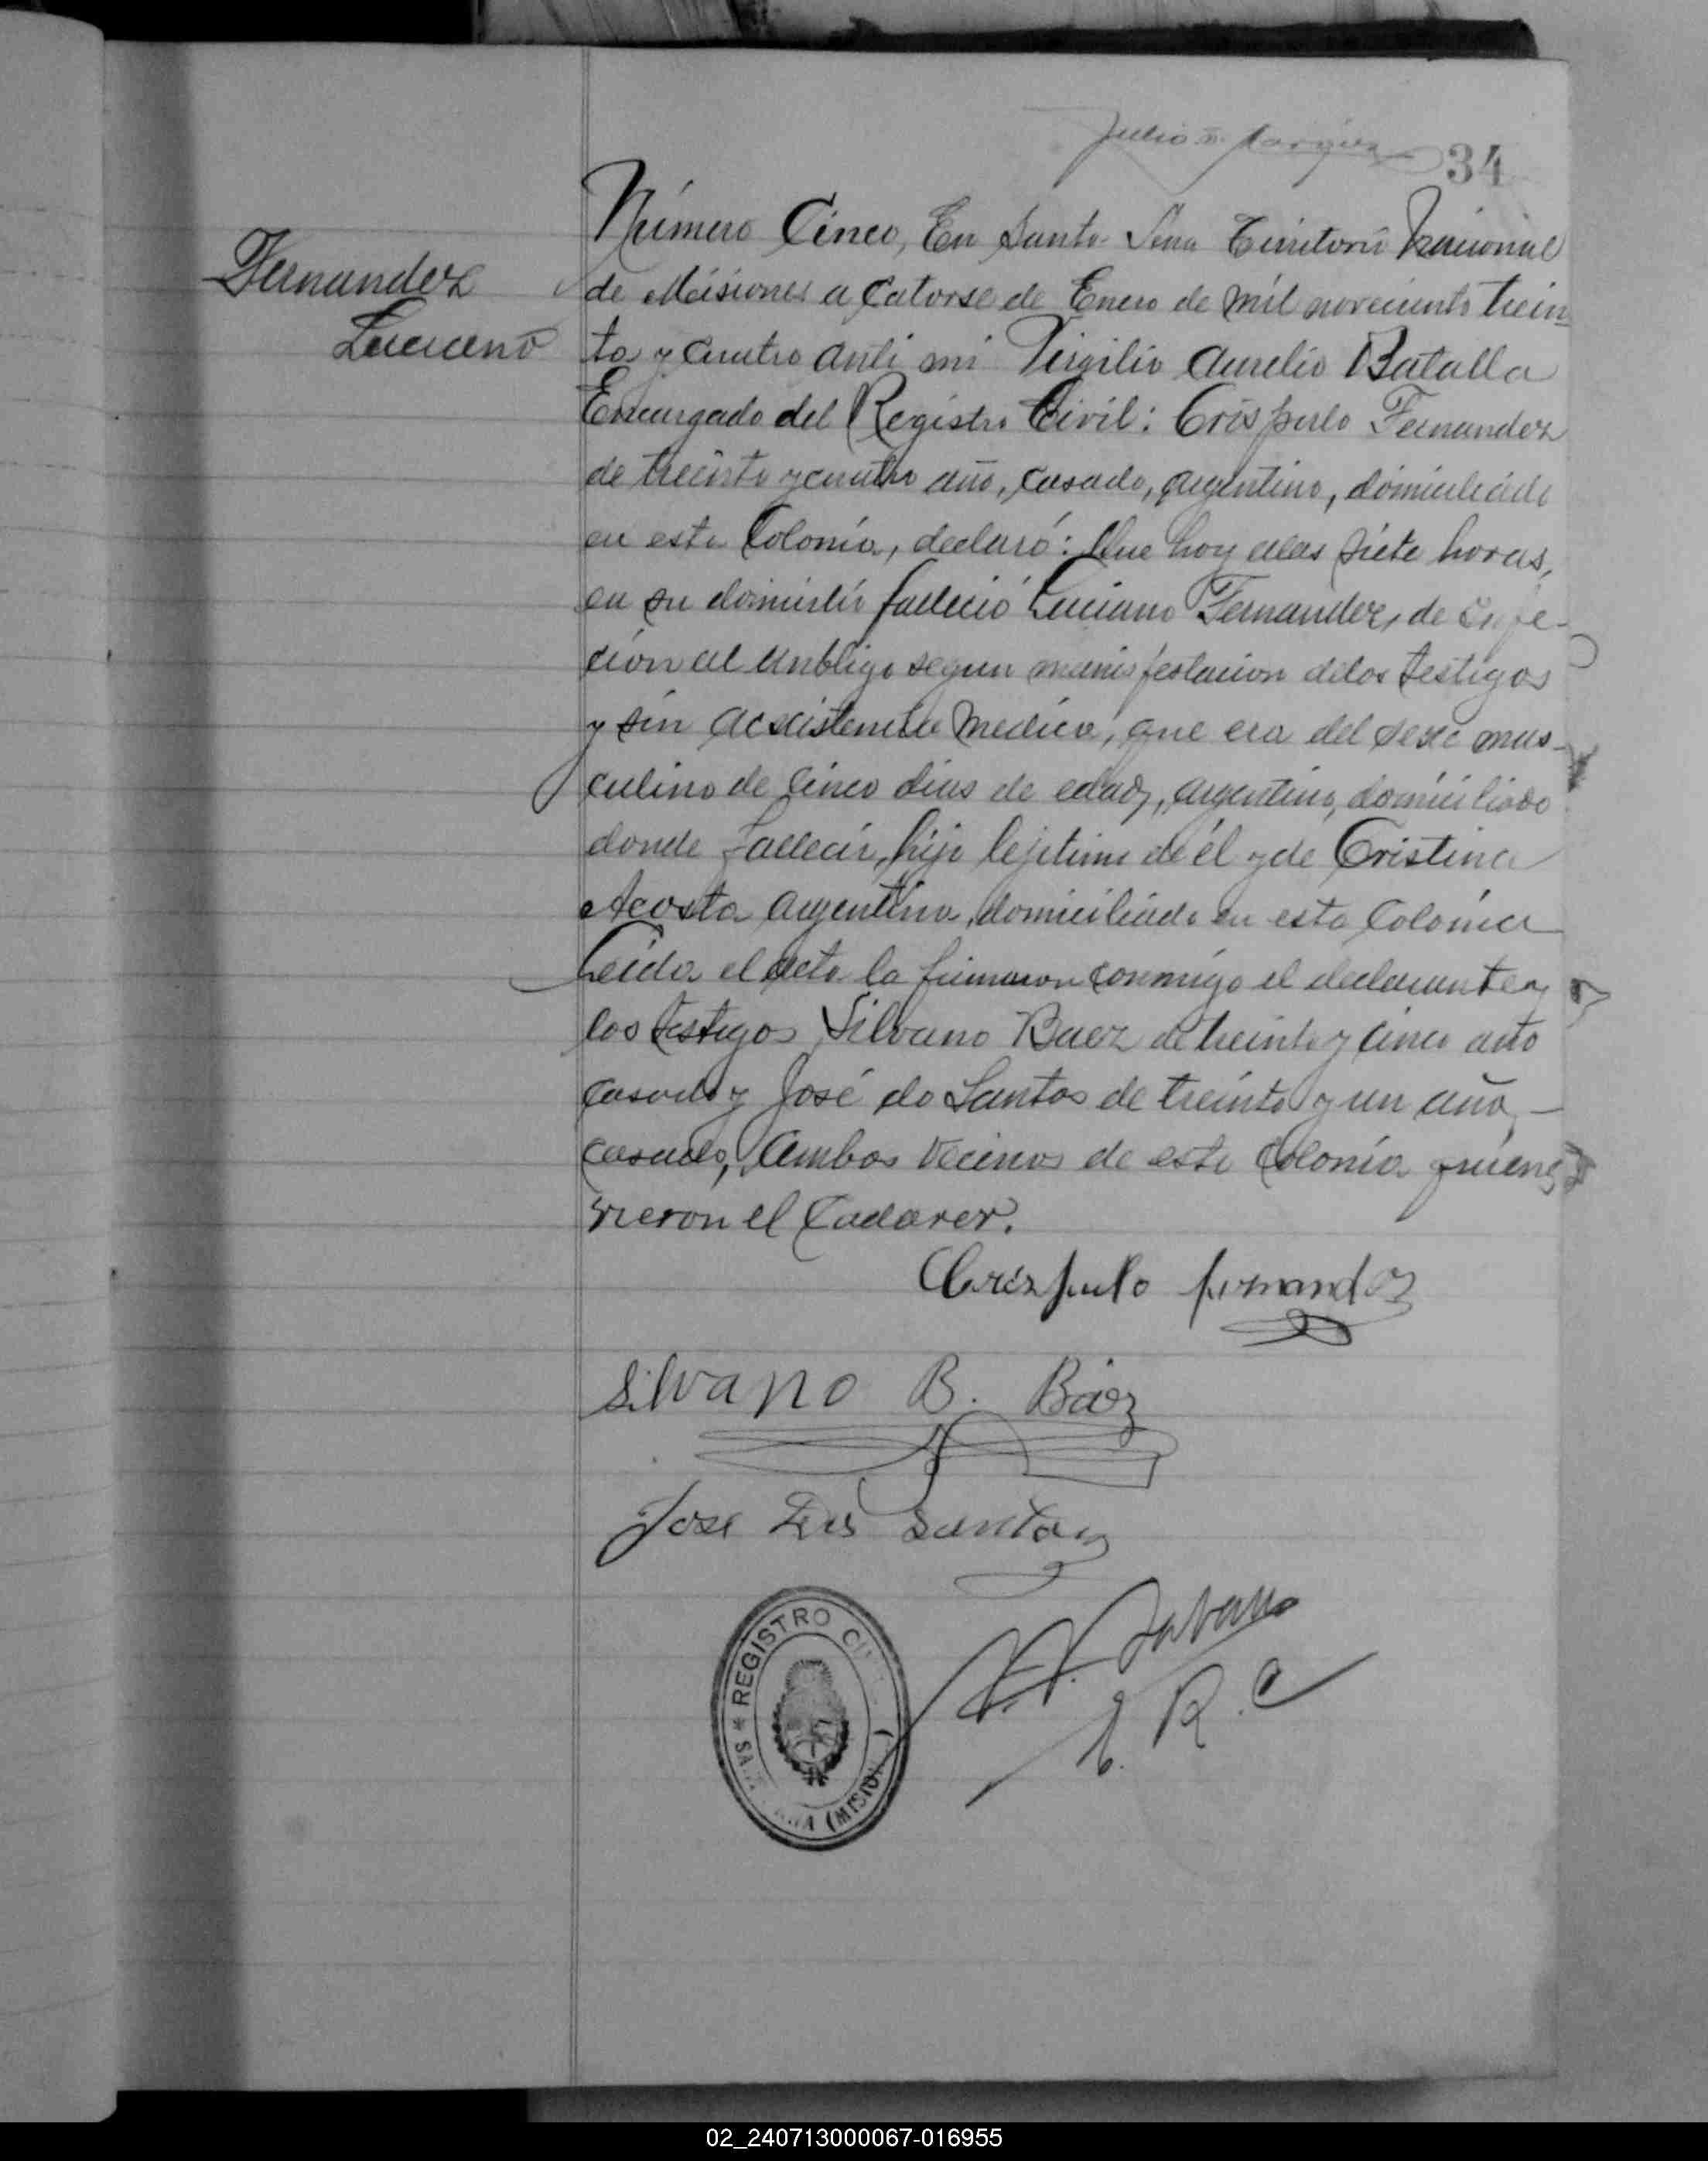 34
Fernandez
Luciano
Número Cinco, En Santa Ana Territorio Nacional
de Misiones a Catorse de Enero de mil novecientos trein-
ta y cuatro ante mi Virgilio Aurelio Batalla
Encargado del Registro Civil: Críspulo Fernandez
de treinta y cuatro año, casado, argentino, domiciliado
en esta Colonia, declaró: Que hoy alas siete horas,
en su domicilio falleció Luciano Fernandez, de infe-
ción al unbligo segun manisfestacion delos testigos
y sin acsistencia medica, que era del sexo mas-
culino de cinco dias de edad, argentino, domiciliado
donde fallecio, hijo lejitimo de él y de Cristina
Acosta argentina, domiciliada en esta Colonia
Leida el acta la firmaron conmigo el declarante y
los testigos Silvano Baez de treinta y cinco año
casado y José do Santos de treinta y un año,
casado, Ambos vecinos de esta Colonia quiens
vieron el Cadaver.
Crezpulo fernandez
Silvano B. Báez
Jose Dos Santos
E. R. C
REGISTRO CI
SAN ANA (MISION )
02_240713000067-016955